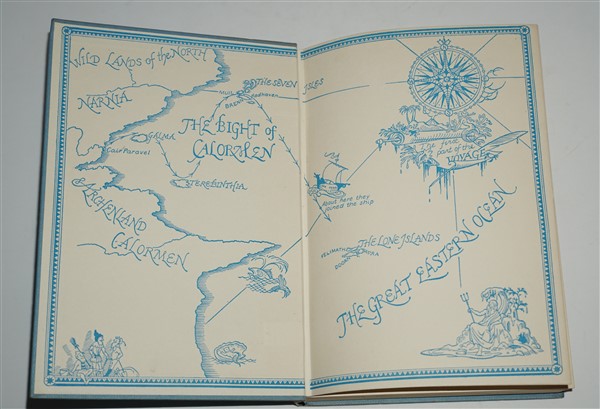 WILD LANDS of the NORTH
NARNIA
THE SEVEN
ISLES
MUIL
BRENN
REDHAVEN
THE BIGHT of
CALORMEN
GALMA
Cair Paravel
TEREBINTHIA
ARCHENLAND
CALORMEN
The first
part of the
VOYAGE
About here they
joined the ship
FELIMATH
DOORN
AVRA
THE LONE ISLANDS
THE GREAT EASTERN OCEAN